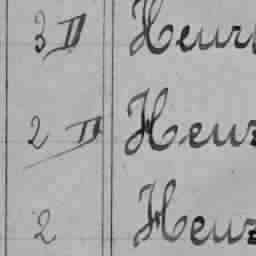 3 II Heur
2 II Heuz
2 Heuz